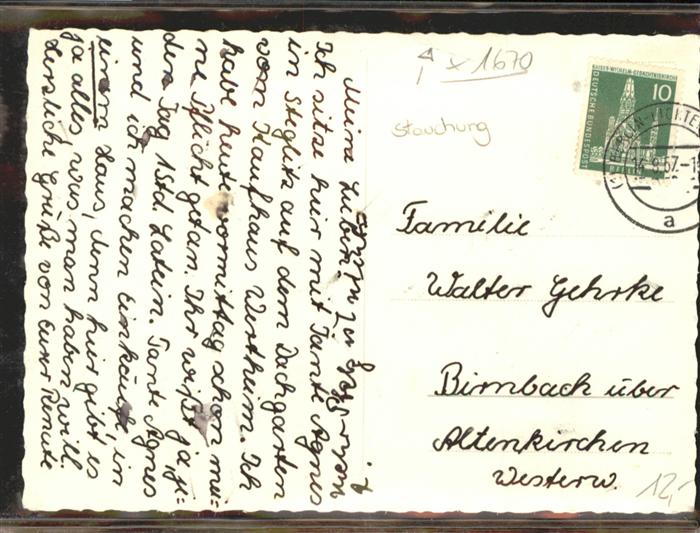 Meine Lieben!
Ich sitze hier mit Tante Agnes
in Steglitz auf dem Dachgarten
vom Kaufhaus Wertheim. Ich
habe heute vormittag schon mei-
ne Pflicht getan. Ihr wißt ja, je-
den Tag 1 Std. Latein. Tante Agnes
und ich machen Einkäufe in
einem Haus, denn hier gibt es
ja alles, was man haben will.
Herzliche Grüße von Eurer Renate
x 1670
Stauchung
KAISER-WILHELM-GEDÄCHTNISKIRCHE
10
DEUTSCHE BUNDESPOST
BERLIN
BERLIN-LICHTE
a
Familie
Walter Gehrke
Birnbach über
Altenkirchen
Westerw.
12,-